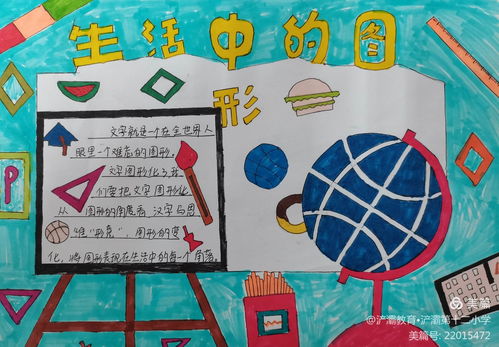 生活中的图
形
文字就是一个在全世界人
眼里一个难忘的图形,
文字图形化了,我
们要把文字图形化
从图形的角度看 汉字与思
维“形意”, 图形的变
化, 将图形表现在生活中的每一个角落。
P
美篇
@浐灞教育·浐灞第十二小学
美篇号: 22015472